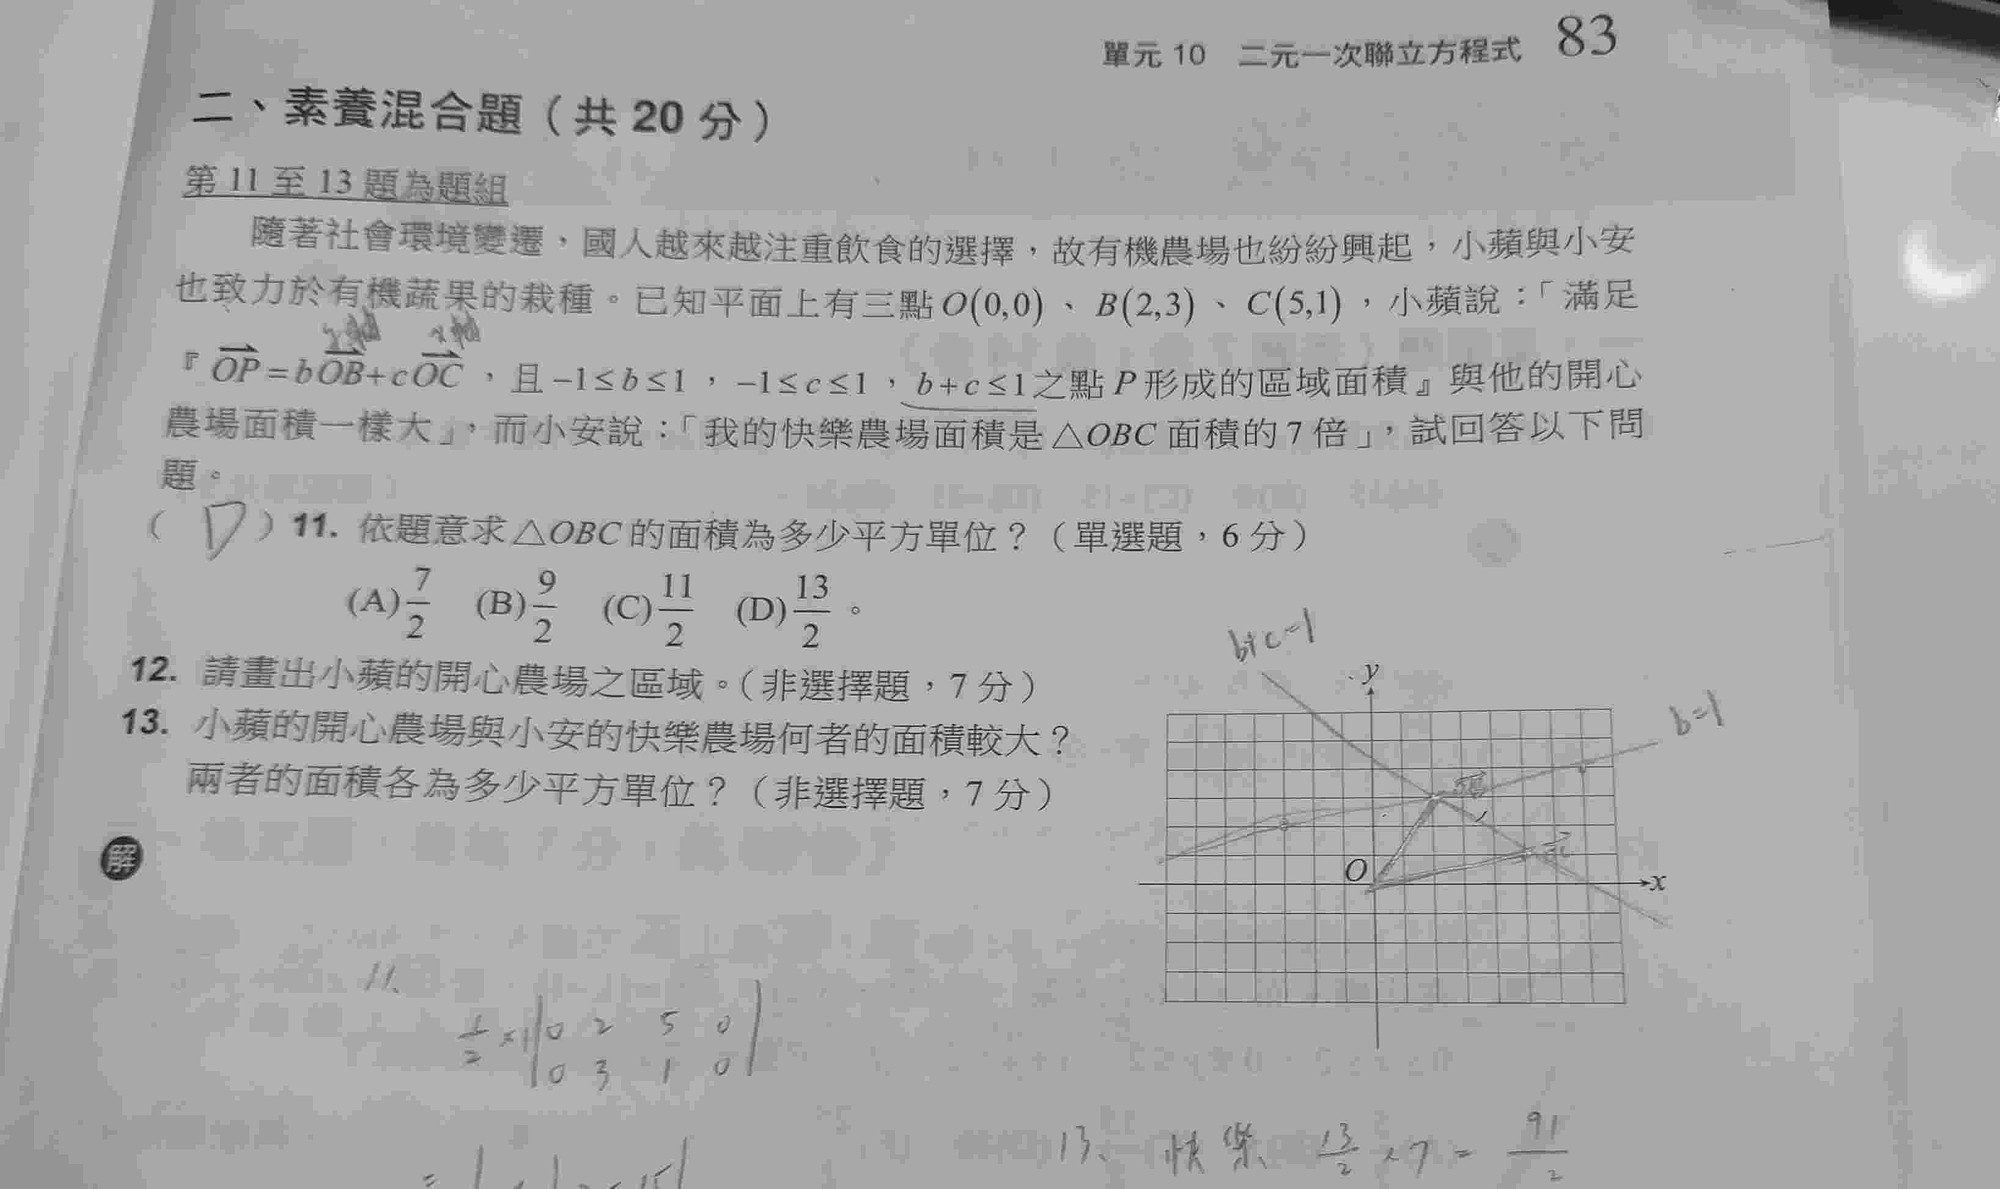 單元 10 二元一次聯立方程式 83
二、素養混合題（共 20 分）
第 11 至 13 題為題組
隨著社會環境變遷，國人越來越注重飲食的選擇，故有機農場也紛紛興起，小蘋與小安
也致力於有機蔬果的栽種。已知平面上有三點 O(0,0)、B(2,3)、C(5,1)，小蘋說：「滿足
y軸 x軸
『 OP=bOB+cOC ，且 −1≤b≤1 ，−1≤c≤1 ，b+c≤1之點 P 形成的區域面積』與他的開心
農場面積一樣大」，而小安說：「我的快樂農場面積是△OBC 面積的 7 倍」，試回答以下問
題。
（ D ）11. 依題意求△OBC 的面積為多少平方單位？（單選題，6 分）
(A) 7/2 (B) 9/2 (C) 11/2 (D) 13/2 。
b+c=1
12. 請畫出小蘋的開心農場之區域。（非選擇題，7 分）
y
b=1
13. 小蘋的開心農場與小安的快樂農場何者的面積較大？
兩者的面積各為多少平方單位？（非選擇題，7 分）
解
O
x
11.
1/2 × | 0 2 5 0
0 3 1 0 |
13、 快樂 13/2 × 7 = 91/2